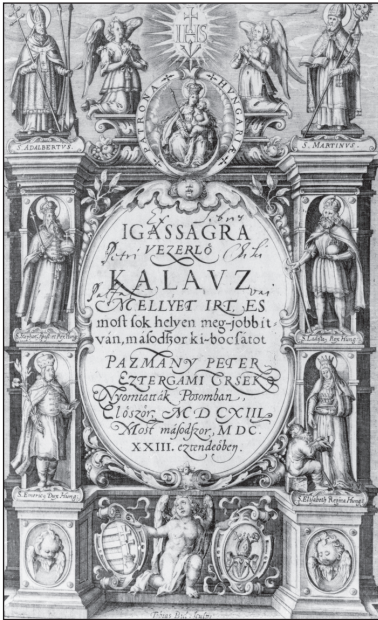 IHS
PATRONA HUNGARIÆ
S. ADALBERTVS.
S. MARTINVS.
Ex Libris
IGASSAGRA
Petri
VEZERLÖ
KALAVZ
MELLYET IRT, ES
most sok helyen meg-jobbit
ván, másodszor ki-bocsátot
PAZMANY PETER
EZTERGAMI ERSEK
Nyomtatták Posomban
Elöször, M D CXIII
Most másodszor, M DC.
XXIII. eztendeöben.
S. Ladisla, Rex Hung.
S. Emericg Dux Hung.
S. Elizabeth Regina Hung.